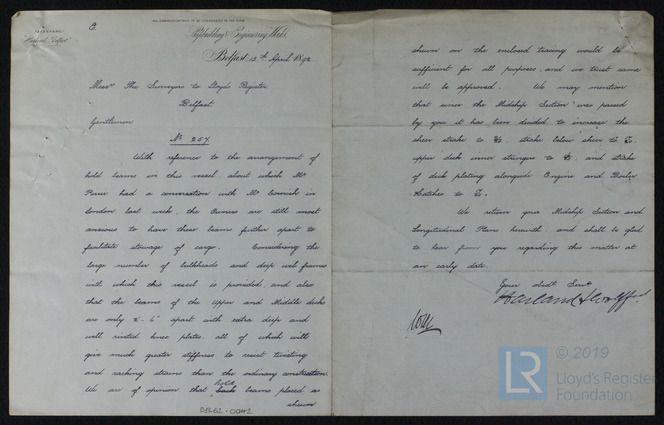 ALL COMMUNICATIONS TO BE ADDRESSED TO THE FIRM
TELEGRAMS
"Harland, Belfast"
C.
Shipbuilding & Engineering Works,
Belfast, 12th April 1892
Messrs The Surveyors to Lloyds Register
Belfast
Gentlemen
No 257
With reference to the arrangement of
hold beams in this vessel about which Mr
Pirrie had a conversation with Mr Cornish in
London last week, the Owners are still most
anxious to have these beams further apart to
facilitate stowage of cargo. Considering the
large number of bulkheads and deep web frames
with which this vessel is provided and also
that the beams of the Upper and Middle decks
are only 2'-6" apart with extra deep and
well riveted knee plates, all of which will
give much greater stiffness to resist twisting
and racking strains than the ordinary construction.
We are of opinion that hold beams placed as
shewn
LR262-0042
shewn on the enclosed tracing would be
sufficient for all purposes, and we trust same
will be approved. We may mention
that since the Midship Section was passed
by you it has been decided to increase the
sheer strake to, strake below sheer to
upper deck inner stringer to, and strake
of deck plating alongside Engine and Boiler
Hatches to
We return your Midship Section and
Longitudinal Plans herewith and shall be glad
to hear from you regarding this matter at
an early date.
Your obedt Servts
Harland & Wolff
© 2019
LR
Lloyd's Register
Foundation